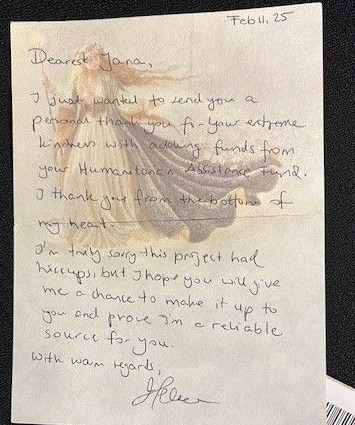 Feb 11, 25
Dearest Jana,
I just wanted to send you a
personal thank you for your extreme
kindness with adding funds from
your Humanitarian Assistance Fund.
I thank you from the bottom of
my heart.
I'm truly sorry this project had
hiccups, but I hope you will give
me a chance to make it up to
you and prove I'm a reliable
source for you.
With warm regards,